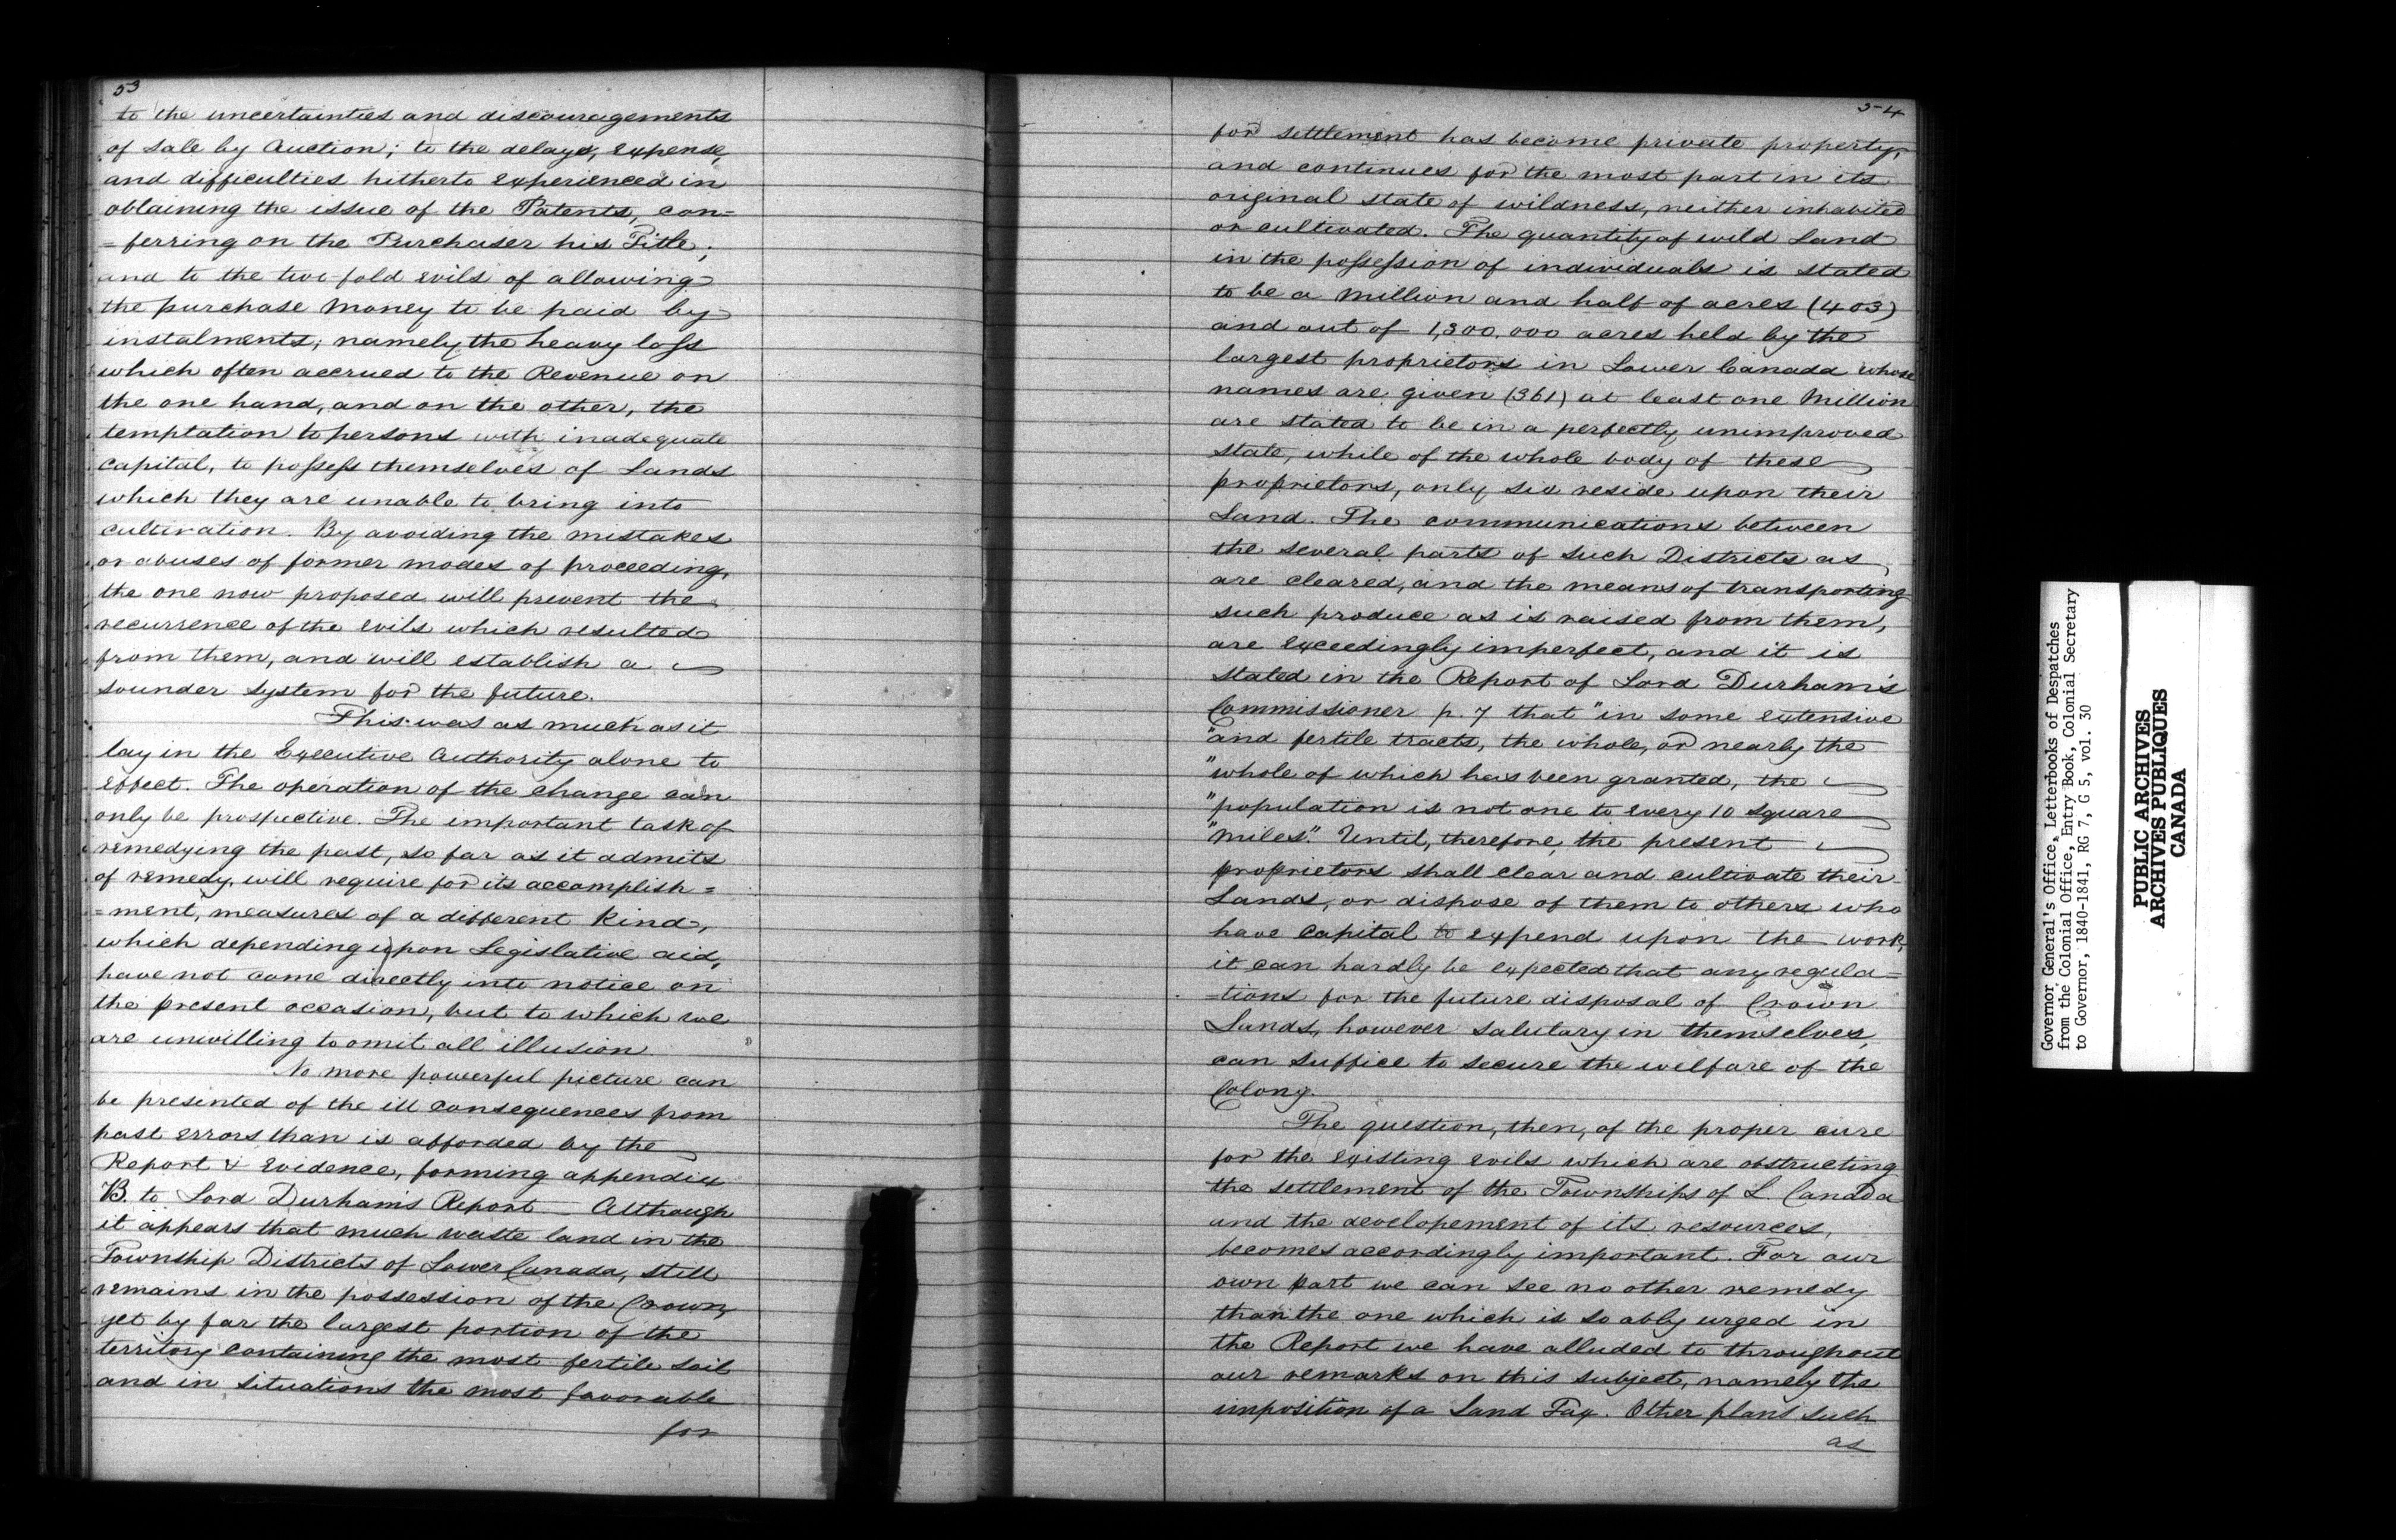 53
to the uncertainties and discouragements
of sale by Auction; to the delays, expense,
and difficulties hitherto experienced in
obtaining the issue of the Patents, con=
=ferring on the Purchaser his Title;
and to the two-fold evils of allowing
the purchase money to be paid by
instalments; namely, the heavy loss
which often accrued to the Revenue on
the one hand, and on the other, the
temptation to persons with inadequate
capital, to possess themselves of Lands
which they are unable to bring into
cultivation. By avoiding the mistakes
or abuses of former modes of proceeding,
the one now proposed will prevent the
recurrence of the evils which resulted
from them, and will establish a
sounder system for the future.
This was as much as it
lay in the Executive Authority alone to
effect. The operation of the change can
only be prospective. The important task of
remedying the past, so far as it admits
of remedy, will require for its accomplish=
=ment, measures of a different kind,
which depending upon Legislative aid,
have not come directly into notice on
the present occasion, but to which we
are unwilling to omit all illusion.
No more powerful picture can
be presented of the ill consequences from
past errors than is afforded by the
Report & Evidence, forming appendix
B. to Lord Durham's Report — Although
it appears that much waste land in the
Township Districts of Lower Canada, still
remains in the possession of the Crown,
yet by far the largest portion of the
territory containing the most fertile soil
and in situations the most favorable
for
54
for settlement has become private property,
and continues for the most part in its
original state of wildness, neither inhabited
or cultivated. The quantity of wild Land
in the possession of individuals is stated
to be a million and half of acres (403)
and out of 1,300.000 acres held by the
largest proprietors in Lower Canada whose
names are given (361) at least one Million
are stated to be in a perfectly unimproved
state, while of the whole body of these
proprietors, only six reside upon their
Land. The communications between
the several parts of such Districts as
are cleared, and the means of transporting
such produce as is raised from them,
are exceedingly imperfect, and it is
stated in the Report of Lord Durham's
Commissioner p. 7 that "in some extensive
"and fertile tracts, the whole, or nearly the
"whole of which has been granted, the
"population is not one to every 10 square
"miles." Until, therefore, the present
proprietors shall clear and cultivate their
Lands, or dispose of them to others who
have capital to expend upon the work,
it can hardly be expected that any regula=
=tions for the future disposal of Crown
Lands, however salutary in themselves,
can suffice to secure the welfare of the
Colony.
The question, then, of the proper cure
for the existing evils which are obstructing
the settlement of the Townships of L. Canada
and the developement of its resources,
becomes accordingly important. For our
own part we can see no other remedy
than the one which is so ably urged in
the Report we have alluded to throughout
our remarks on this subject, namely the
imposition of a Land Tax. Other plans such
as
Governor General's Office, Letterbooks of Despatches
from the Colonial Office, Entry Book, Colonial Secretary
to Governor, 1840-1841, RG 7, G 5, vol. 30
PUBLIC ARCHIVES
ARCHIVES PUBLIQUES
CANADA